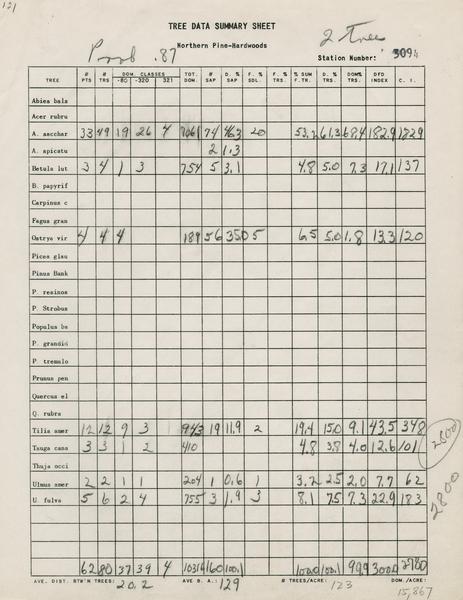 121
TREE DATA SUMMARY SHEET
Prob .87 Northern Pine-Hardwoods 2 Trees
Station Number: 3094
TREE # PTS # TRS DOM. CLASSES -80 -320 321 TOT. DOM. # SAP D. % SAP F. % SDL. F. % TRS. % SUM F.TR. D. % TRS. DOM% TRS. DFD INDEX C. I.
Abiea bala
Acer rubru
A. sacchar 33 49 19 26 4 7061 74 46.3 20 53.2 61.3 68.4 182.9 1829
A. spicatu 2 1.3
Betula lut 3 4 1 3 754 5 3.1 4.8 5.0 7.3 17.1 137
B. papyrif
Carpinus c
Fagua gran
Ostrya vir 4 4 4 189 56 35.0 5 6.5 5.0 1.8 13.3 120
Picea glau
Pinus Bank
P. resinos
P. Strobus
Populus ba
P. grandid
P. tremulo
Prunus pen
Quercus el
Q. rubra
Tilia amer 12 12 9 3 943 19 11.9 2 19.4 15.0 9.1 43.5 348
Tsuga cana 3 3 1 2 410 4.8 3.8 4.0 12.6 101
Thuja occi
Ulmus amer 2 2 1 1 204 1 0.6 1 3.2 2.5 2.0 7.7 62
U. fulva 5 6 2 4 755 3 1.9 3 8.1 7.5 7.3 22.9 183
2800
2800
62 80 37 39 4 10316 160 100.1 100.0 100.1 99.9 300.0 2780
AVE. DIST. BTW'N TREES: 20.2 AVE B. A.: 129 # TREES/ACRE: 123 DOM./ACRE: 15,867